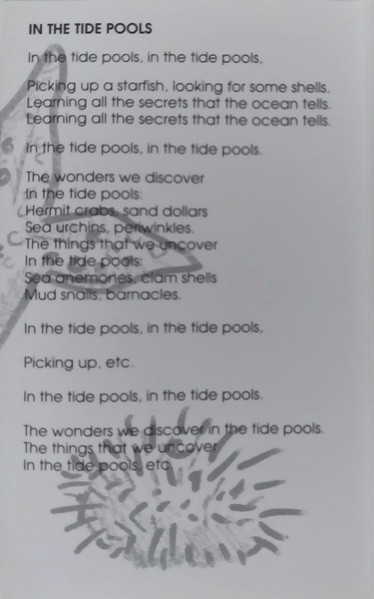 IN THE TIDE POOLS
In the tide pools, in the tide pools,
Picking up a starfish, looking for some shells,
Learning all the secrets that the ocean tells.
Learning all the secrets that the ocean tells.
In the tide pools, in the tide pools.
The wonders we discover
In the tide pools:
Hermit crabs, sand dollars
Sea urchins, periwinkles.
The things that we uncover
In the tide pools:
Sea anemones, clam shells
Mud snails, barnacles.
In the tide pools, in the tide pools,
Picking up, etc.
In the tide pools, in the tide pools.
The wonders we discover in the tide pools.
The things that we uncover
In the tide pools, etc.